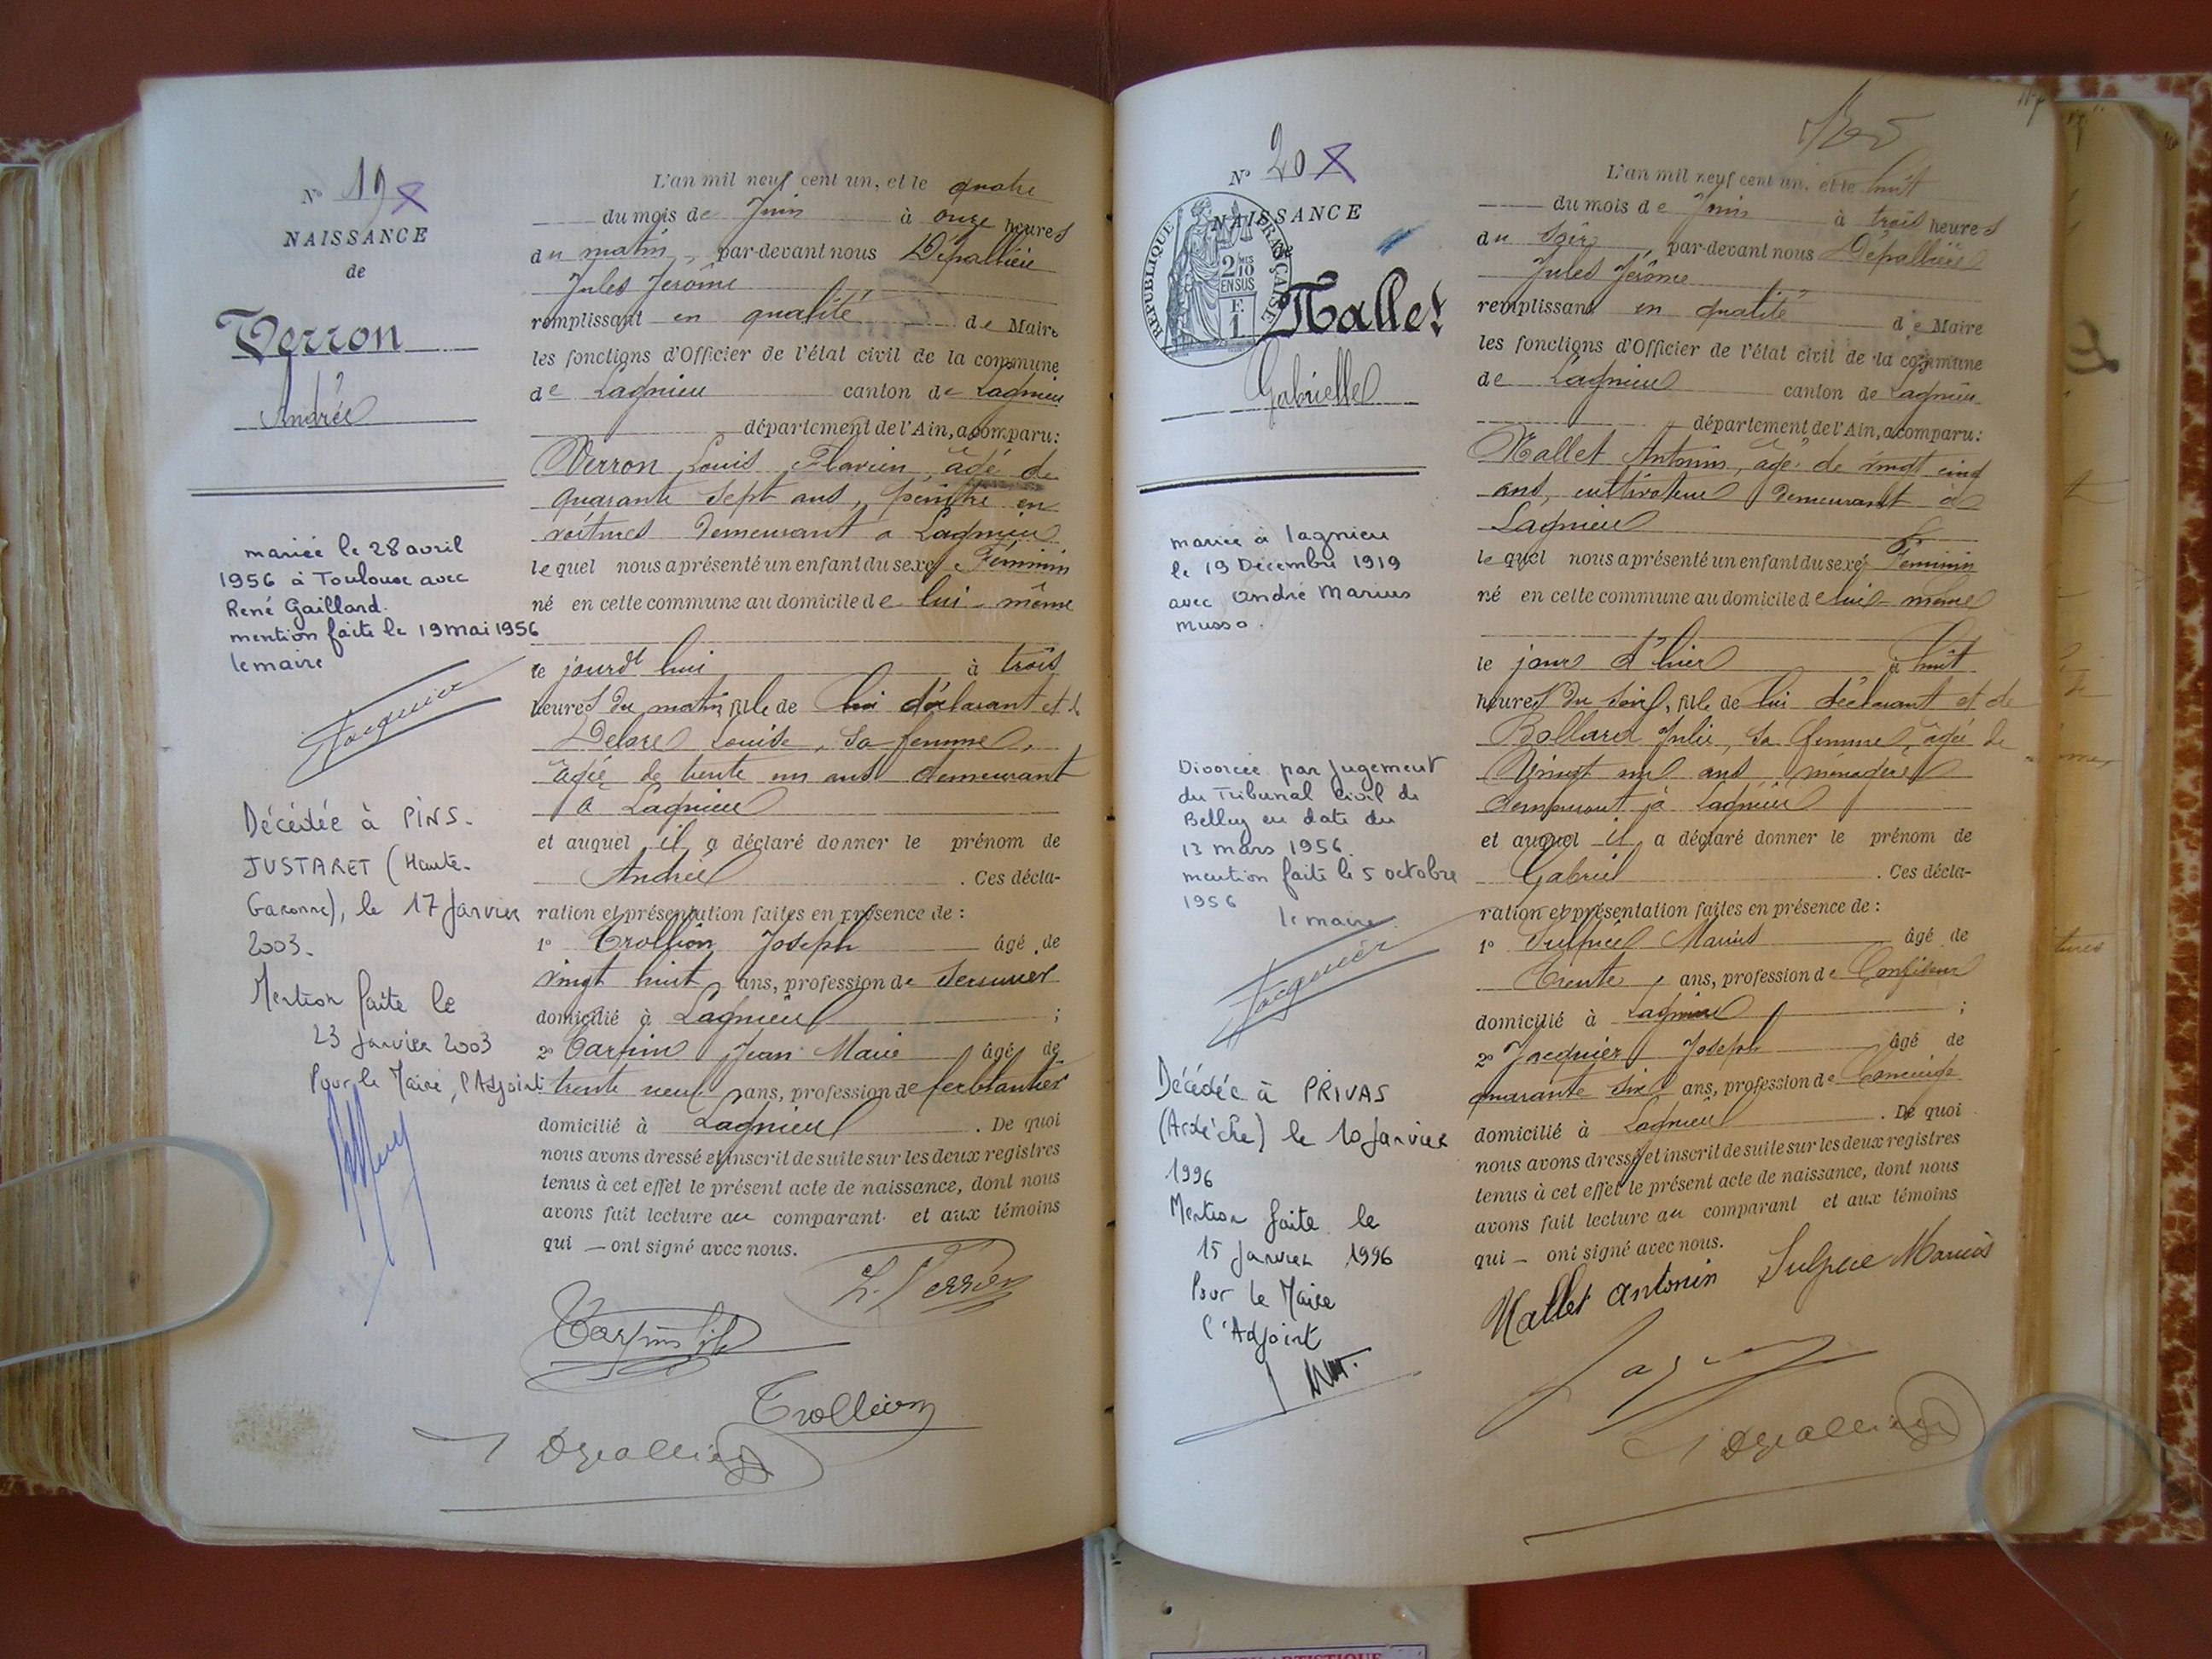 N° 19
NAISSANCE
de
Verron
Andrée
mariée le 28 avril
1956 à Toulouse avec
René Gaillard.
mention faite le 19 mai 1956
le maire
Jacquier
Décédée à PINS-
JUSTARET (Haute-
Garonne), le 17 Janvier
2003.
Mention faite le
23 Janvier 2003
Pour le Maire, l'Adjoint
L'an mil neuf cent un, et le quatre
du mois de Juin à onze heures
du matin, par-devant nous Dépallière
Jules Jérôme
remplissant en qualité de Maire
les fonctions d'Officier de l'état civil de la commune
de Lagnieu canton de Lagnieu
département de l'Ain, a comparu:
Verron Louis Flavien, âgé de
quarante sept ans, peintre en
voitures demeurant à Lagnieu
lequel nous a présenté un enfant du sexe Féminin
né en cette commune au domicile de lui-même
ce jourd'hui à trois
heures du matin, fille de lui déclarant et de
Louise, sa femme,
âgée de trente un ans demeurant
à Lagnieu
et auquel il a déclaré donner le prénom de
Andrée . Ces décla-
ration et présentation faites en présence de :
1° Trollion Joseph âgé de
vingt huit ans, profession de serrurier
domicilié à Lagnieu ;
2° Jean Marie âgé de
trente neuf ans, profession de ferblantier
domicilié à Lagnieu . De quoi
nous avons dressé et inscrit de suite sur les deux registres
tenus à cet effet le présent acte de naissance, dont nous
avons fait lecture au comparant et aux témoins
qui — ont signé avec nous.
L. Verron
Trollion
N° 20
NAISSANCE
de
REPUBLIQUE FRANÇAISE
2/10 EN SUS
F. 1
Mallet
Gabrielle
mariée à lagnieu
le 19 Décembre 1919
avec andré Marius
musso.
Divorcée par Jugement
du Tribunal Civil de
Belley en date du
13 mars 1956.
mention faite le 5 octobre
1956
le maire
Jacquier
Décédée à PRIVAS
(Ardèche) le 10 Janvier
1996
Mention faite le
15 Janvier 1996
Pour le Maire
l'Adjoint
L'an mil neuf cent un, et le huit
du mois de Juin à trois heures
du soir, par-devant nous Dépallière
Jules Jérôme
remplissant en qualité de Maire
les fonctions d'Officier de l'état civil de la commune
de Lagnieu canton de Lagnieu
département de l'Ain, a comparu:
Mallet Antonin, âgé de vingt cinq
ans, cultivateur demeurant à
Lagnieu
lequel nous a présenté un enfant du sexe Féminin
né en cette commune au domicile de lui-même
le jour d'hier à huit
heures du soir, fille de lui déclarant et de
Bollard Julie, sa femme, âgée de
vingt un ans ménagère
demeurant à Lagnieu
et auquel il a déclaré donner le prénom de
Gabriel . Ces décla-
ration et présentation faites en présence de :
1° Sulpice Marius âgé de
trente ans, profession de Confiseur
domicilié à Lagnieu ;
2° Jacquier Joseph âgé de
quarante six ans, profession de Concierge
domicilié à Lagnieu . De quoi
nous avons dressé et inscrit de suite sur les deux registres
tenus à cet effet le présent acte de naissance, dont nous
avons fait lecture au comparant et aux témoins
qui — ont signé avec nous.
Mallet antonin Sulpice Marius